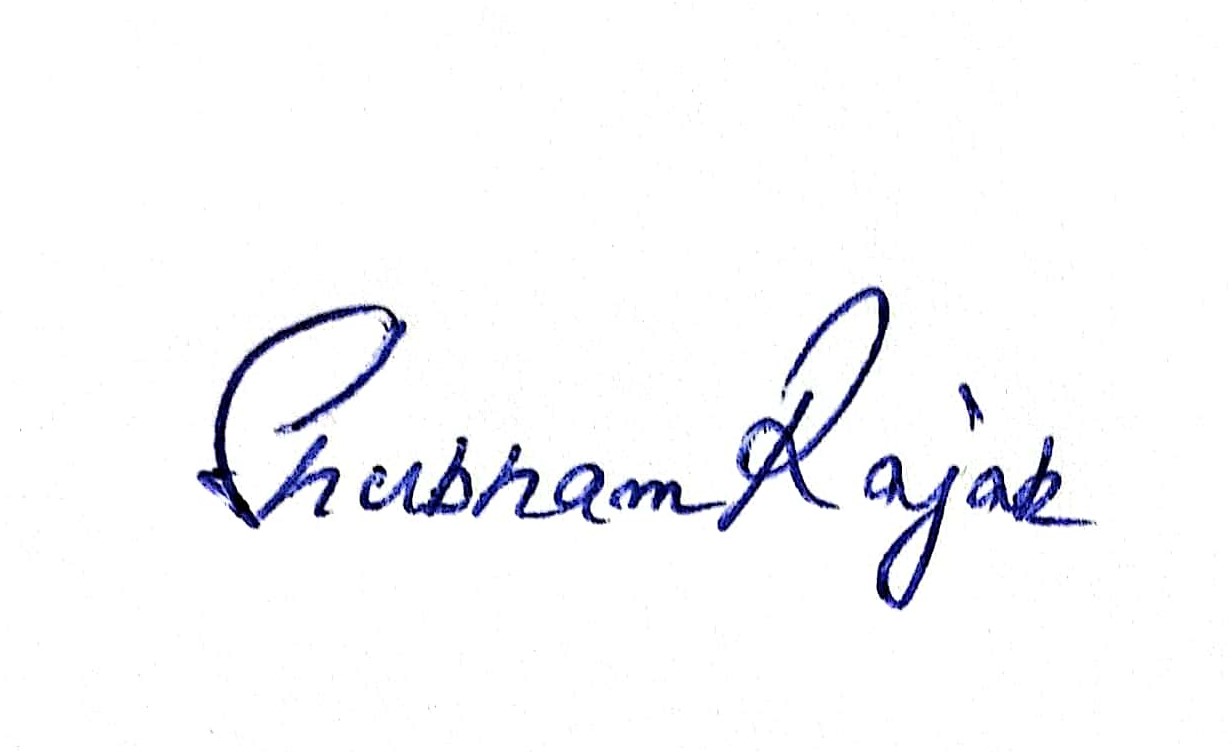 Shubham Rajak